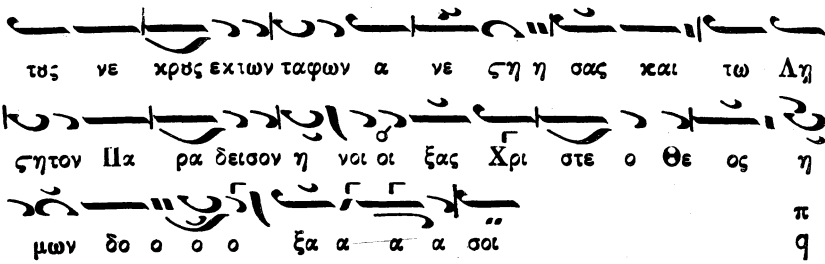 τȣς νε κρȣς εκτων ταφων α νε ϛη η σας και τω Λῃ
ϛητον Πα ρα δεισον η νοι οι ξας Χρι στε ο Θε ος η
μων δο ο ο ο ξα α α α σοι π
q